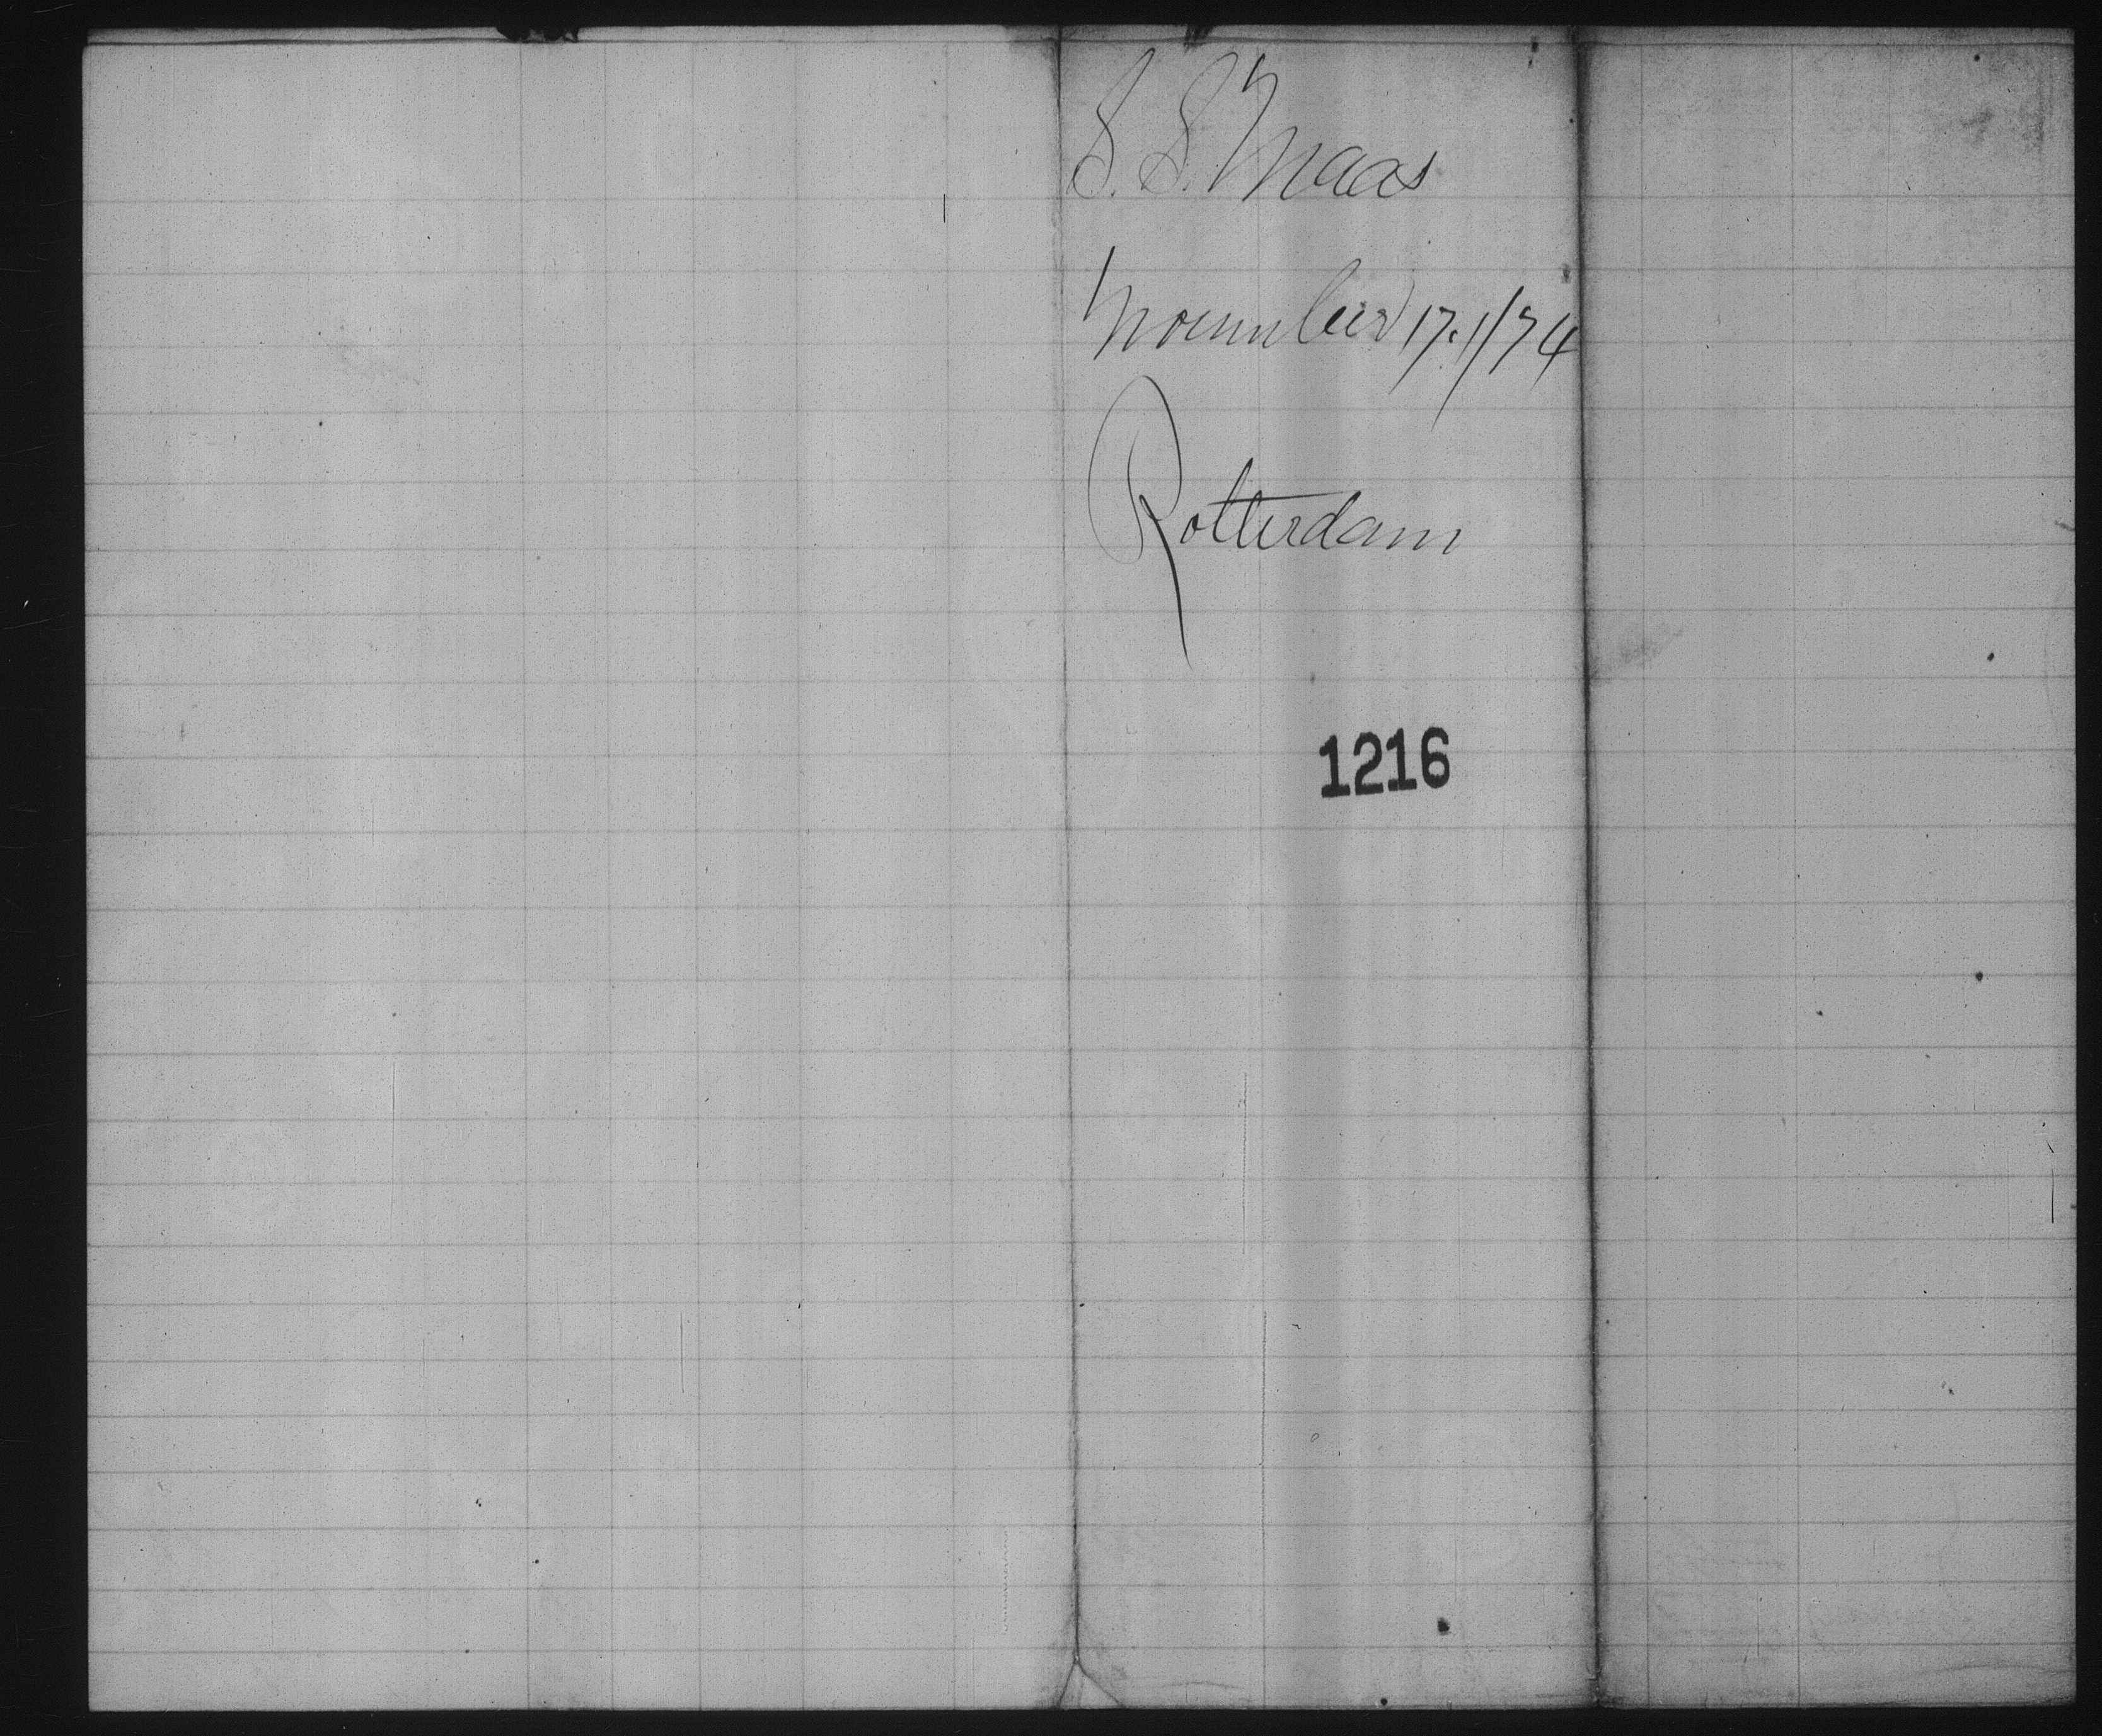 S. S. Maas
November 17. 1/74
Rotterdam
1216